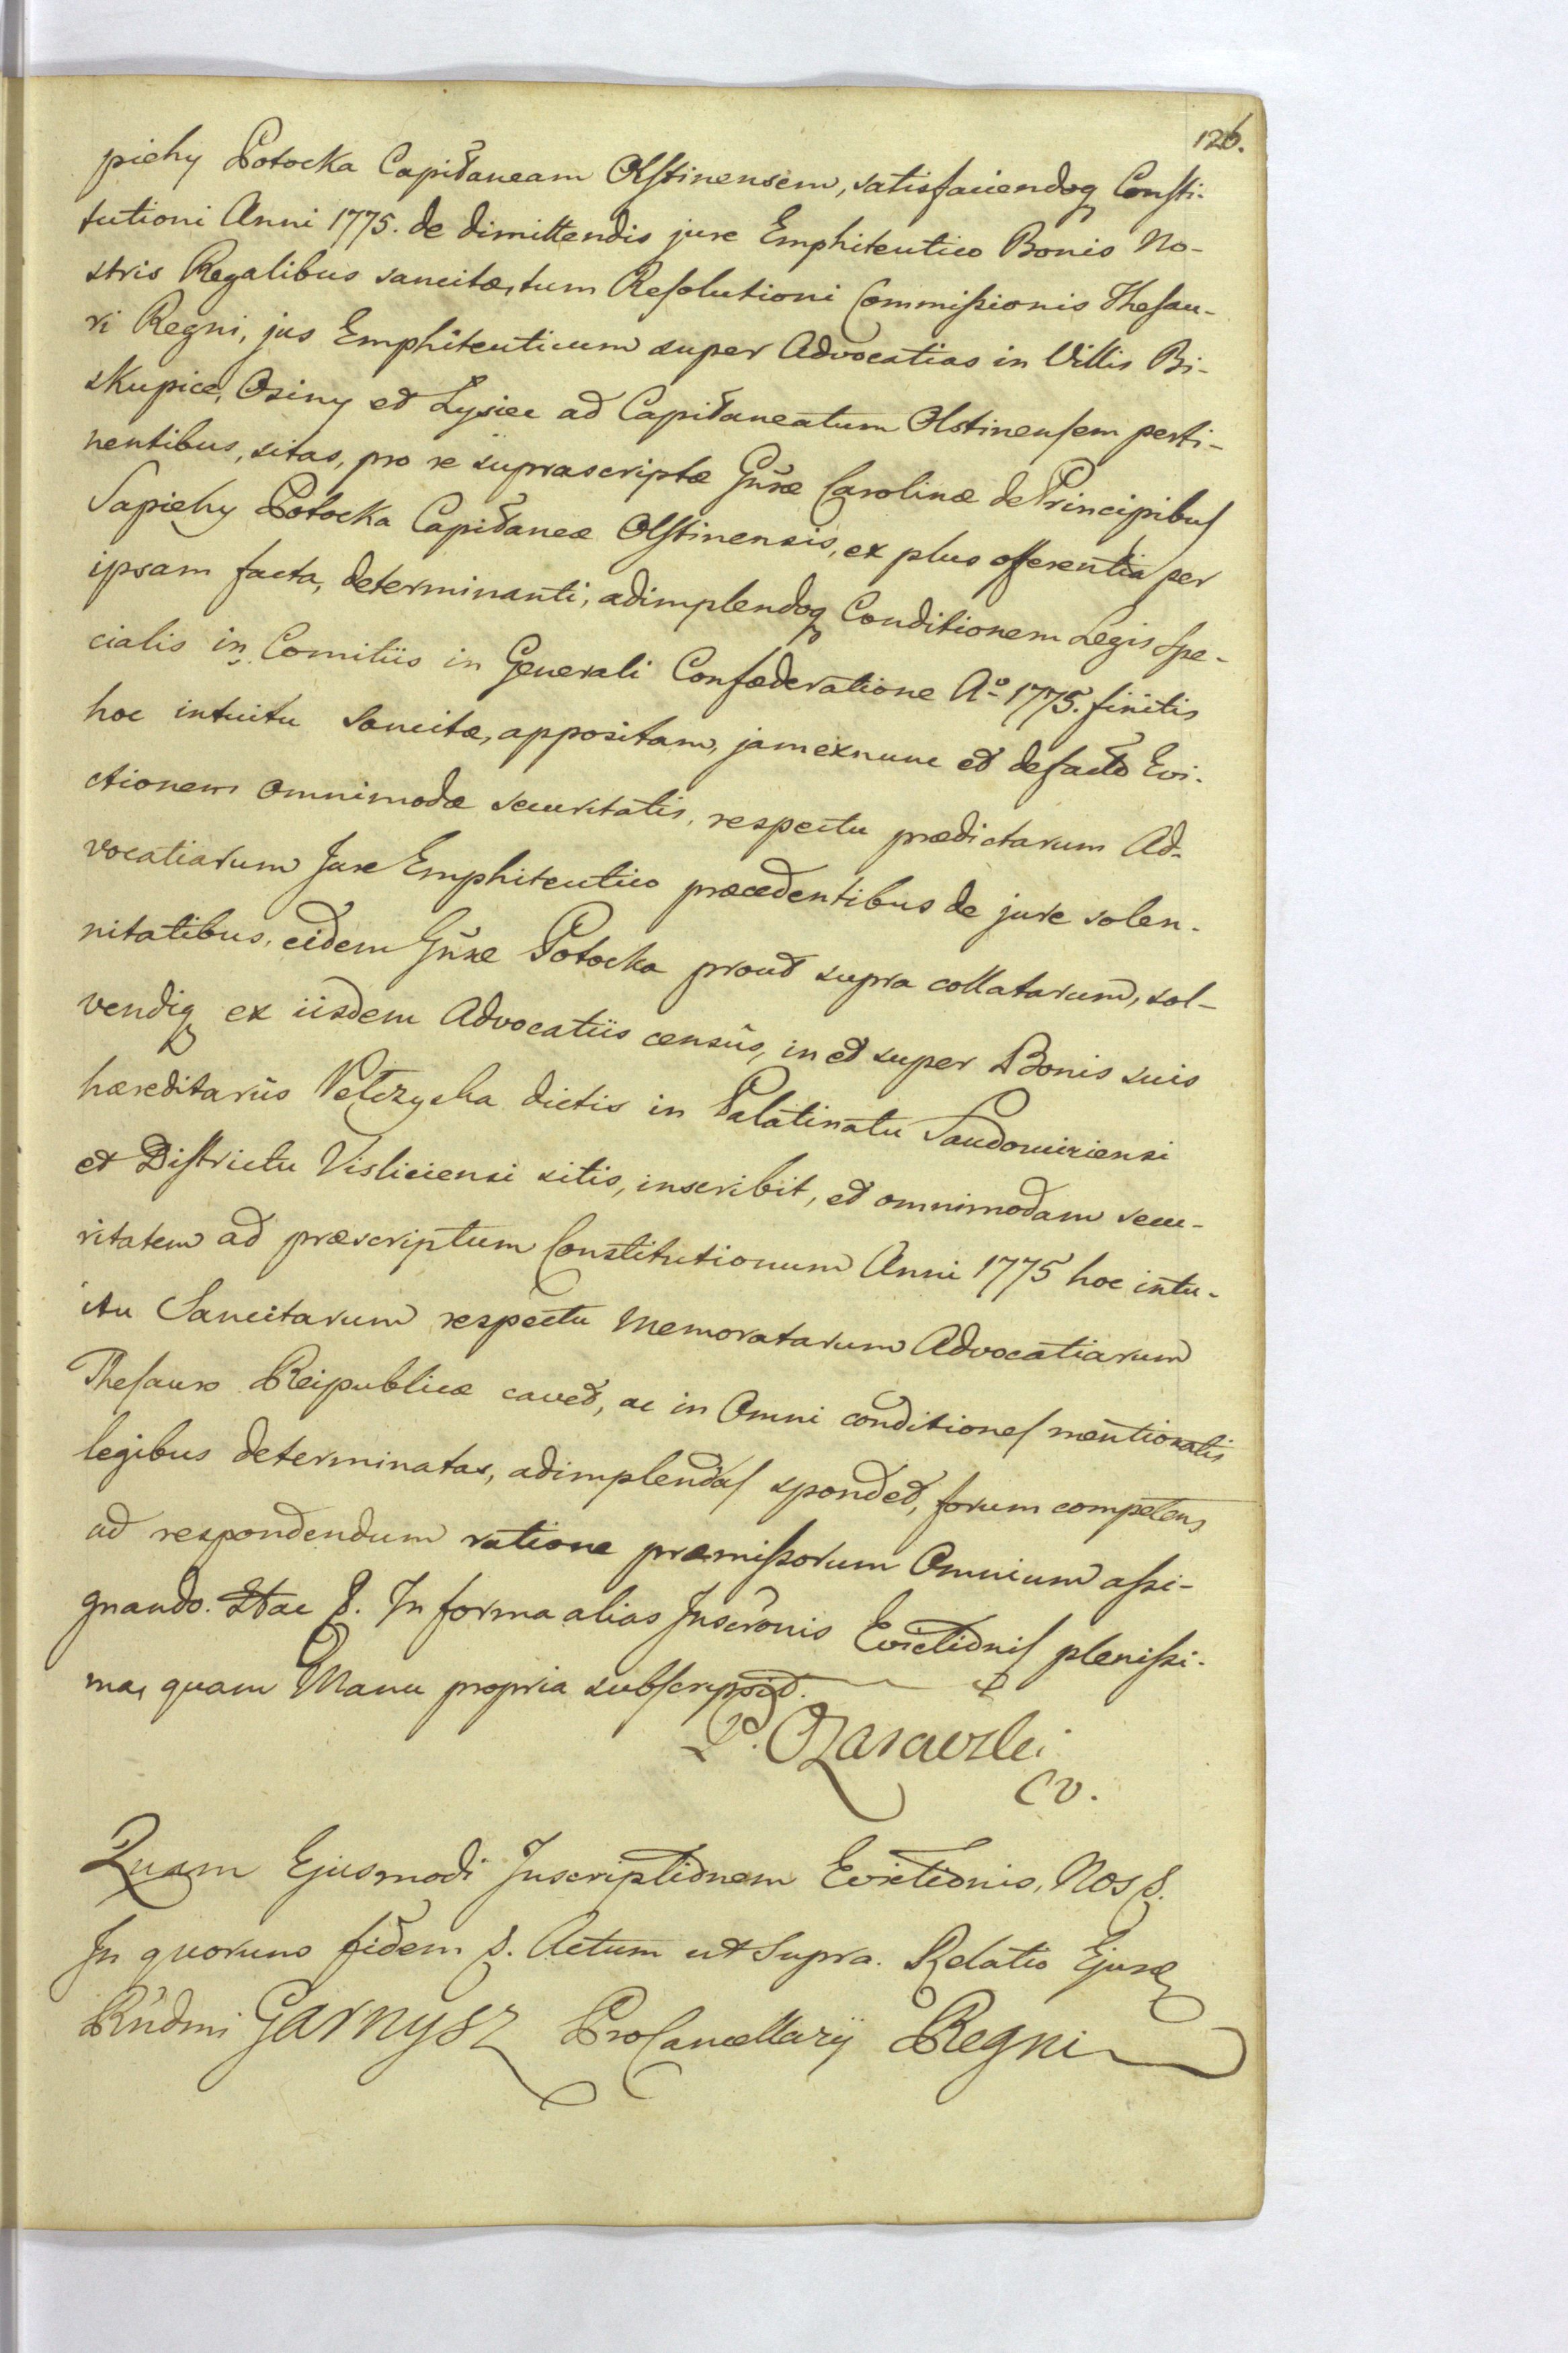 126.
piehy Potocka Capitaneam Olstinensem, satisfaciendoq Consti-
tutioni Anni 1775. de dimittendis jure Emphiteutico Bonis No-
stris Regalibus sancitæ, tum Resolutioni Commissionis Thesau-
ri Regni, jus Emphiteuticum super Advocatias in Villis Bi-
skupice, Osiny et Lysiec ad Capitaneatum Olstinensem perti-
nentibus, sitas, pro re supra scriptæ Gnsæ Carolinæ de Principibus
Sapiehy Potocka Capitaneæ Olstinensis, ex plus offerentia per
ipsam facta, determinanti, adimplendoq Conditionem Legis Spe-
cialis in Comitiis in Generali Confæderatione Aº 1775. finitis
hoc intuitu Sancitæ, appositam, jam exnunc et defacto Evi-
ctionem omnimodæ securitatis, respectu prædictarum Ad-
vocatiarum Jure Emphiteutico præcedentibus de jure solen-
nitatibus, eidem Gnsæ Potocka prout supra collatarum, sol-
vendiq ex iisdem Advocatiis census, in et super Bonis suis
hæreditariis Pełczyska dictis in Palatinatu Sandomiriensi
et Districtu Visliciensi sitis, inscribit, et omnimodam secu-
ritatem ad præscriptum Constitutionum Anni 1775 hoc intu-
itu Sancitarum respectu Memoratarum Advocatiarum
Thesauro Reipublicæ cavet, ac in Omni conditiones mentionatis
legibus determinatas, adimplendas spondet, forum competens
ad respondendum ratione præmissorum Omnium assi-
gnando. Hac &. In forma alias Inscronis Evictionis plenissi-
ma, quam Manu propria subscripsit.
Quam Ejusmodi Inscriptionem Evictionis, Nos &.
In quorum fidem &. Actum ut Supra. Relatio Ejusd
Rndmi Garnysz ProCancellarij Regni